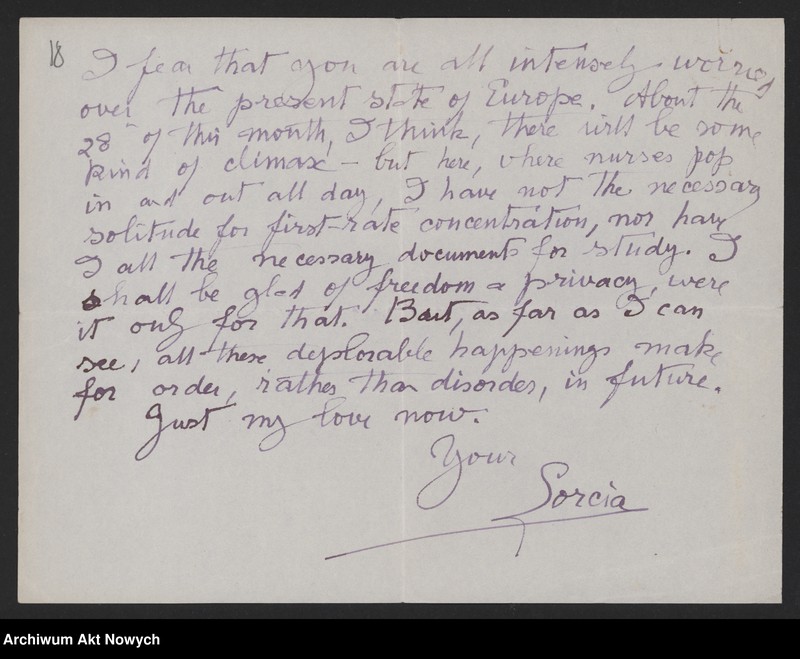 18
I fear that you are all intensely worried
over the present state of Europe. About the
28th of this month, I think, there will be some
kind of climax – but here, where nurses pop
in and out all day, I have not the necessary
solitude for first-rate concentration, nor have
I all the necessary documents for study. I
shall be glad of freedom & privacy, were
it only for that. But, as far as I can
see, all these deplorable happenings make
for order, rather than disorder, in future.
Just my love now.
Your
Sorcia
Archiwum Akt Nowych